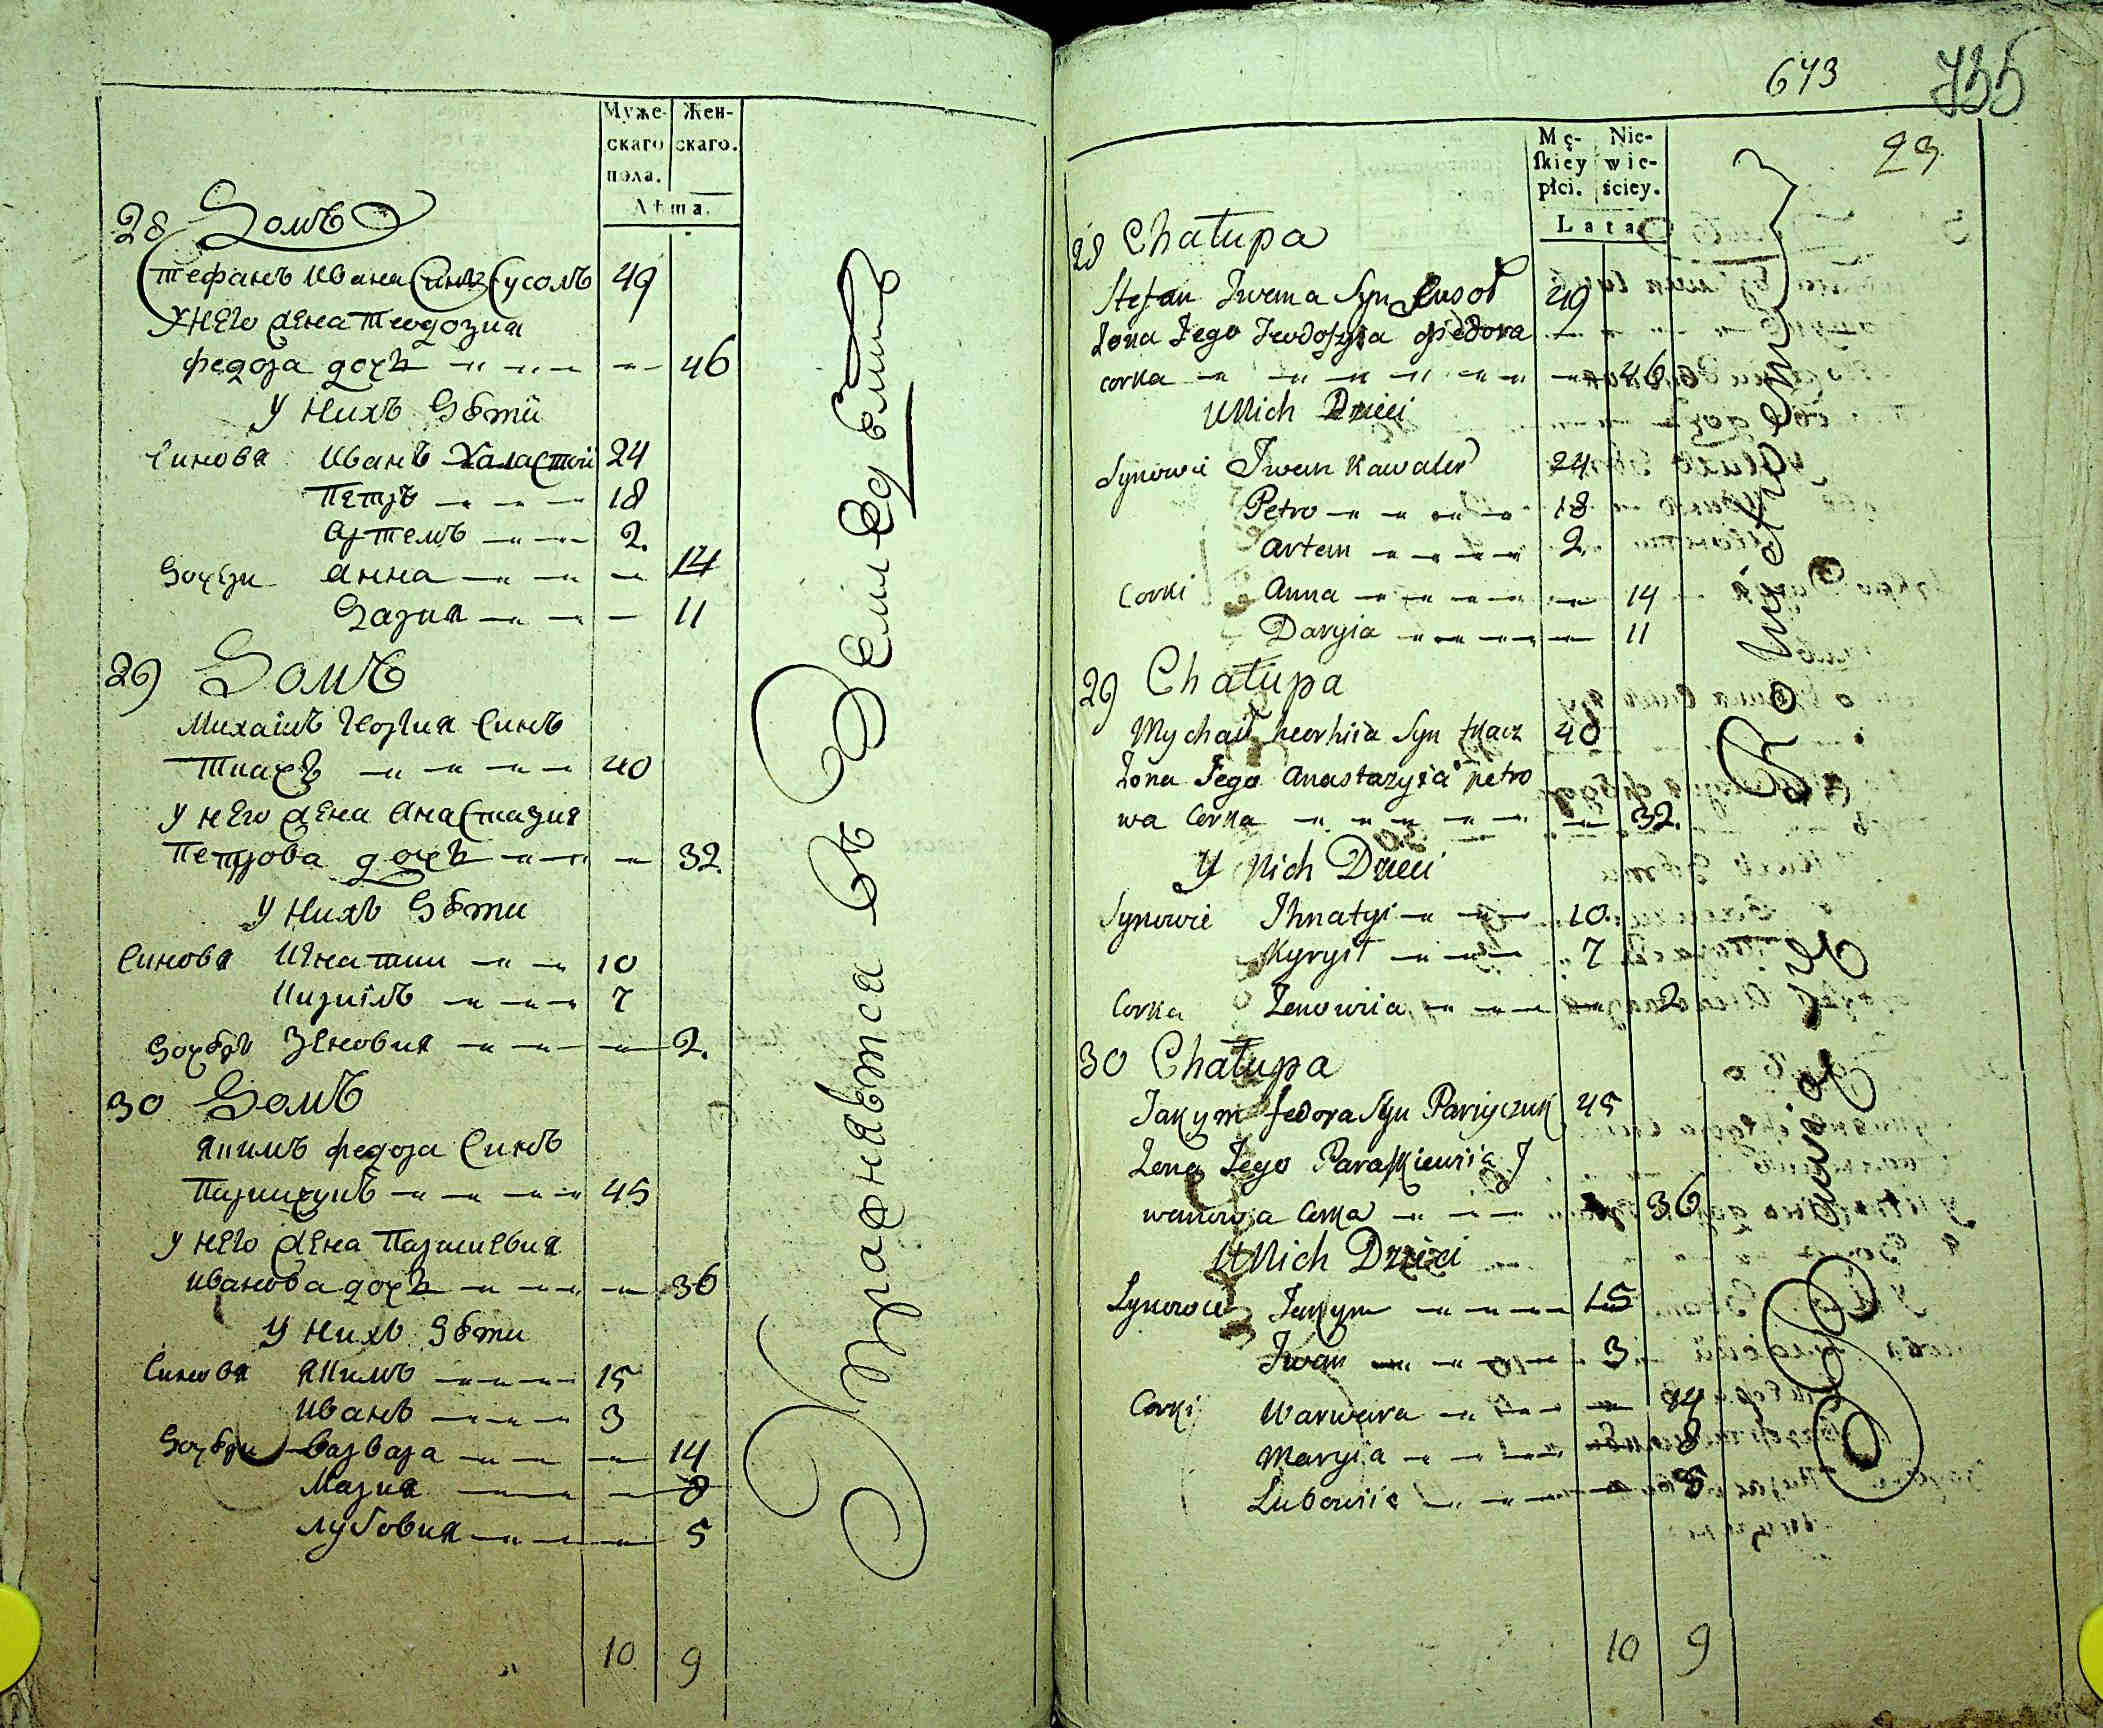 Муже-
скаго
пола.
Жен-
скаго.
Лѣта.
28 Домъ
Стефанъ Ивана Синъ Сусолъ 49
У него Жена Теодозия
Федора дочь 46
У нихъ Дѣти
Синовя Иванъ Халастой 24
Петръ 18
Артемъ 2.
Дочери Анна 14
Дария 11
29 Домъ
Михаилъ Георгия Синъ
Ткачъ 40
У него Жена Анастазия
Петрова дочь 32.
У нихъ Дѣти
Синовя Игнатии 10
Кирилъ 7
Дочерь Зеновия 2.
30 Домъ
Якимъ Федора Синъ
Парийчукъ 45
У него Жена Параскевия
Иванова дочь 36
У нихъ Дѣти
Синовя Якимъ 15
Иванъ 3
Дочери Варвара 14
Мария 8
Лубовия 5
10 9
Упражняются въ Земледѣлии
673 755
23
Mę-
skiey
płci.
Nie-
wie-
ściey.
Lata
28 Chałupa
Stefan Iwana Syn Susoł 49
Żona Jego Teodozyia Fiedora
corka 46
U Nich Dzieci
Synowie Iwan Kawaler 24
Petro 18
Artem 2
Corki Anna 14
Daryia 11
29 Chałupa
Mychaił heorhiia Syn tkacz 40
Żona Jego Anastazyia petro
wa Corka 32.
U Nich Dzieci
Synowie Ihnatyi 10
Kyryłł 7
Corka Zenowiia 2
30 Chałupa
Jakym fedora Syn Paryiczuk 45
Żona Jego Paraskiewiia I
wanowa Corka 36
U Nich Dzieci
Synowie Jakym 15
Iwan 3
Corki Warwara 14
Maryia 8
Lubowiia 5
10 9